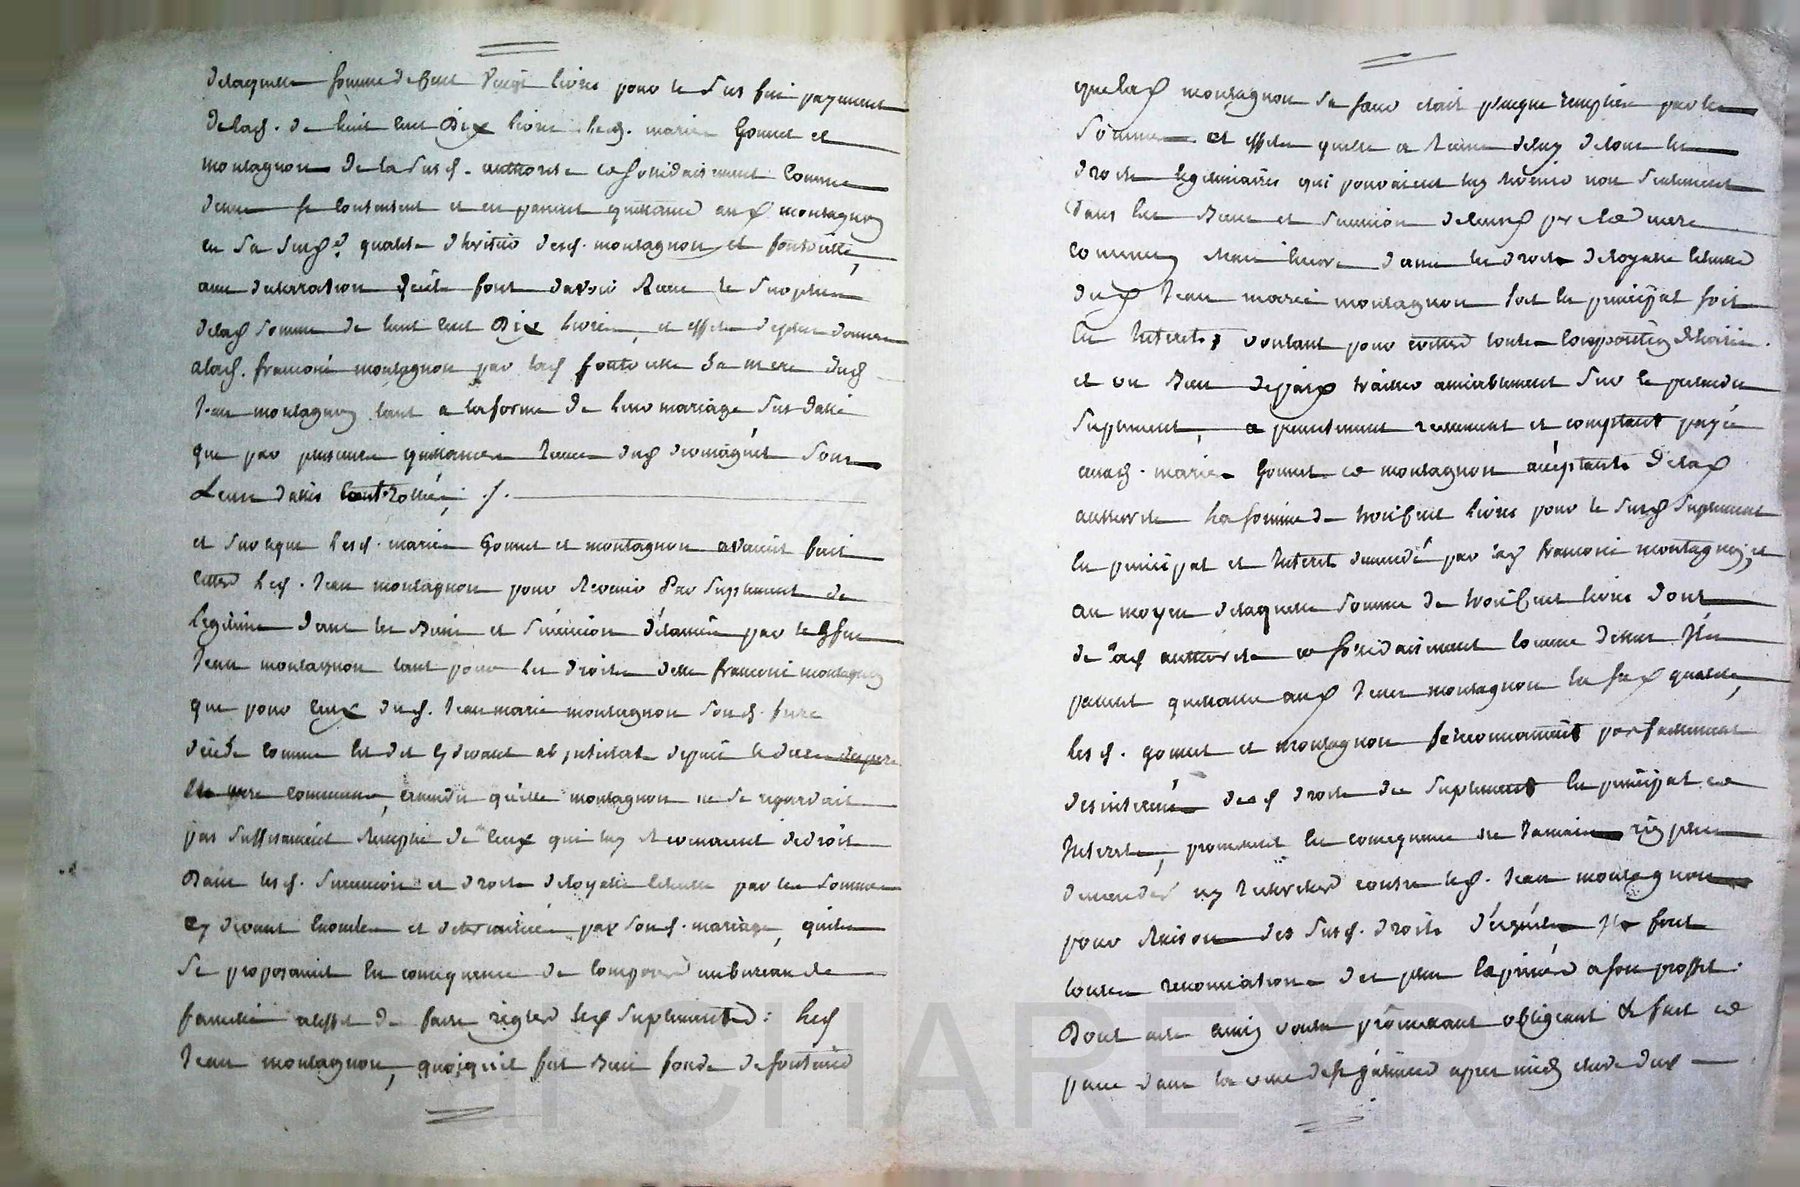 delaquelle somme de Cent vingt livres pour le sus fini payement
delad. de huit cent Dix livres lesd. mariés Gomet et
montagnon de la susd. authorité solidairement comme
dessus se contentent et en passent quittance aud montagnon
en sa susd. qualité d'héritier desd. montagnon et fontvielle,
avec declaration qu'ils font davoir Receu le surplus
delad somme de huit cent Dix livres, et effets depuis donnés
alad. francoise montagnon par lad fontvielle sa mere dud
Jean montagnon tant a la forme de leur mariage sus datté
que par plusieurs quittances Receues dud domaignet sous
Leurs dattes Controllées ./.
et sur ceque lesd. mariés Gomet et montagnon avaient fait
citter led. Jean montagnon pour Revenir Par suplement de
légitime dans les Biens et succession délaissés par led feu
Jean montagnon tant pour les droits delle francoise montagnon
que pour ceux dud. Jean marie montagnon son d. frere
décédé comme lest dit cy devant ab intestat depuis le décès
commune, attendu qu'elle montagnon ne se regardait
pas suffisament Remplie de ceux qui luy Revenaient de droit
Dans lesd. succession et droits deloyalle echutte par les sommes
cy devant enoncées et detraittées par sond. mariage, qu'ils
se proposaient en consequence de composer un bureau de
famille a leffet de faire régler led suplement: led
Jean montagnon, quoiqu'il fut Bien fondé de soutenir
que lad montagnon sa sœur etait plaine remplie par les
sommes et effets quelle a Receus deluy de tous les
droits legitimaires qui pouvaient luy Revenir non seulement
dans les Biens et succession deleursd pere et mere
communs mais encore dans les droits deloyalle echutte
dud Jean marie montagnon soit en principal soit
en Interets, voulant pour evitter toutes
et en Bien de paix traitter amiablement sur le pretendu
suplement, a presentement reellement et comptant payé
auxd. mariés Gomet et montagnon acceptants delad
authorité la somme de trois Cent livres pour le susd suplement
en principal et Interets demandé par lad francoise montagnon, et
au moyen delaquelle somme de trois Cent livres dont
de lad authorité solidairement comme dessus Ils
passent quittance aud Jean montagnon en sad qualité,
lesd. gomet et montagnon se reconnaissent parfaittement
desinterressés desd droits de suplement en principal et
Interets, promettent en consequence de Jamais rien plus
demander ny Rechercher contre led. Jean montagnon
pour Raison des susd. droits desquels Ils font
toutes renonciations dit plus a son proffit.
Dont acte ainsi voulu promettant obligeant &a fait et
passé dans la ville de St galmier apres midy etude dud